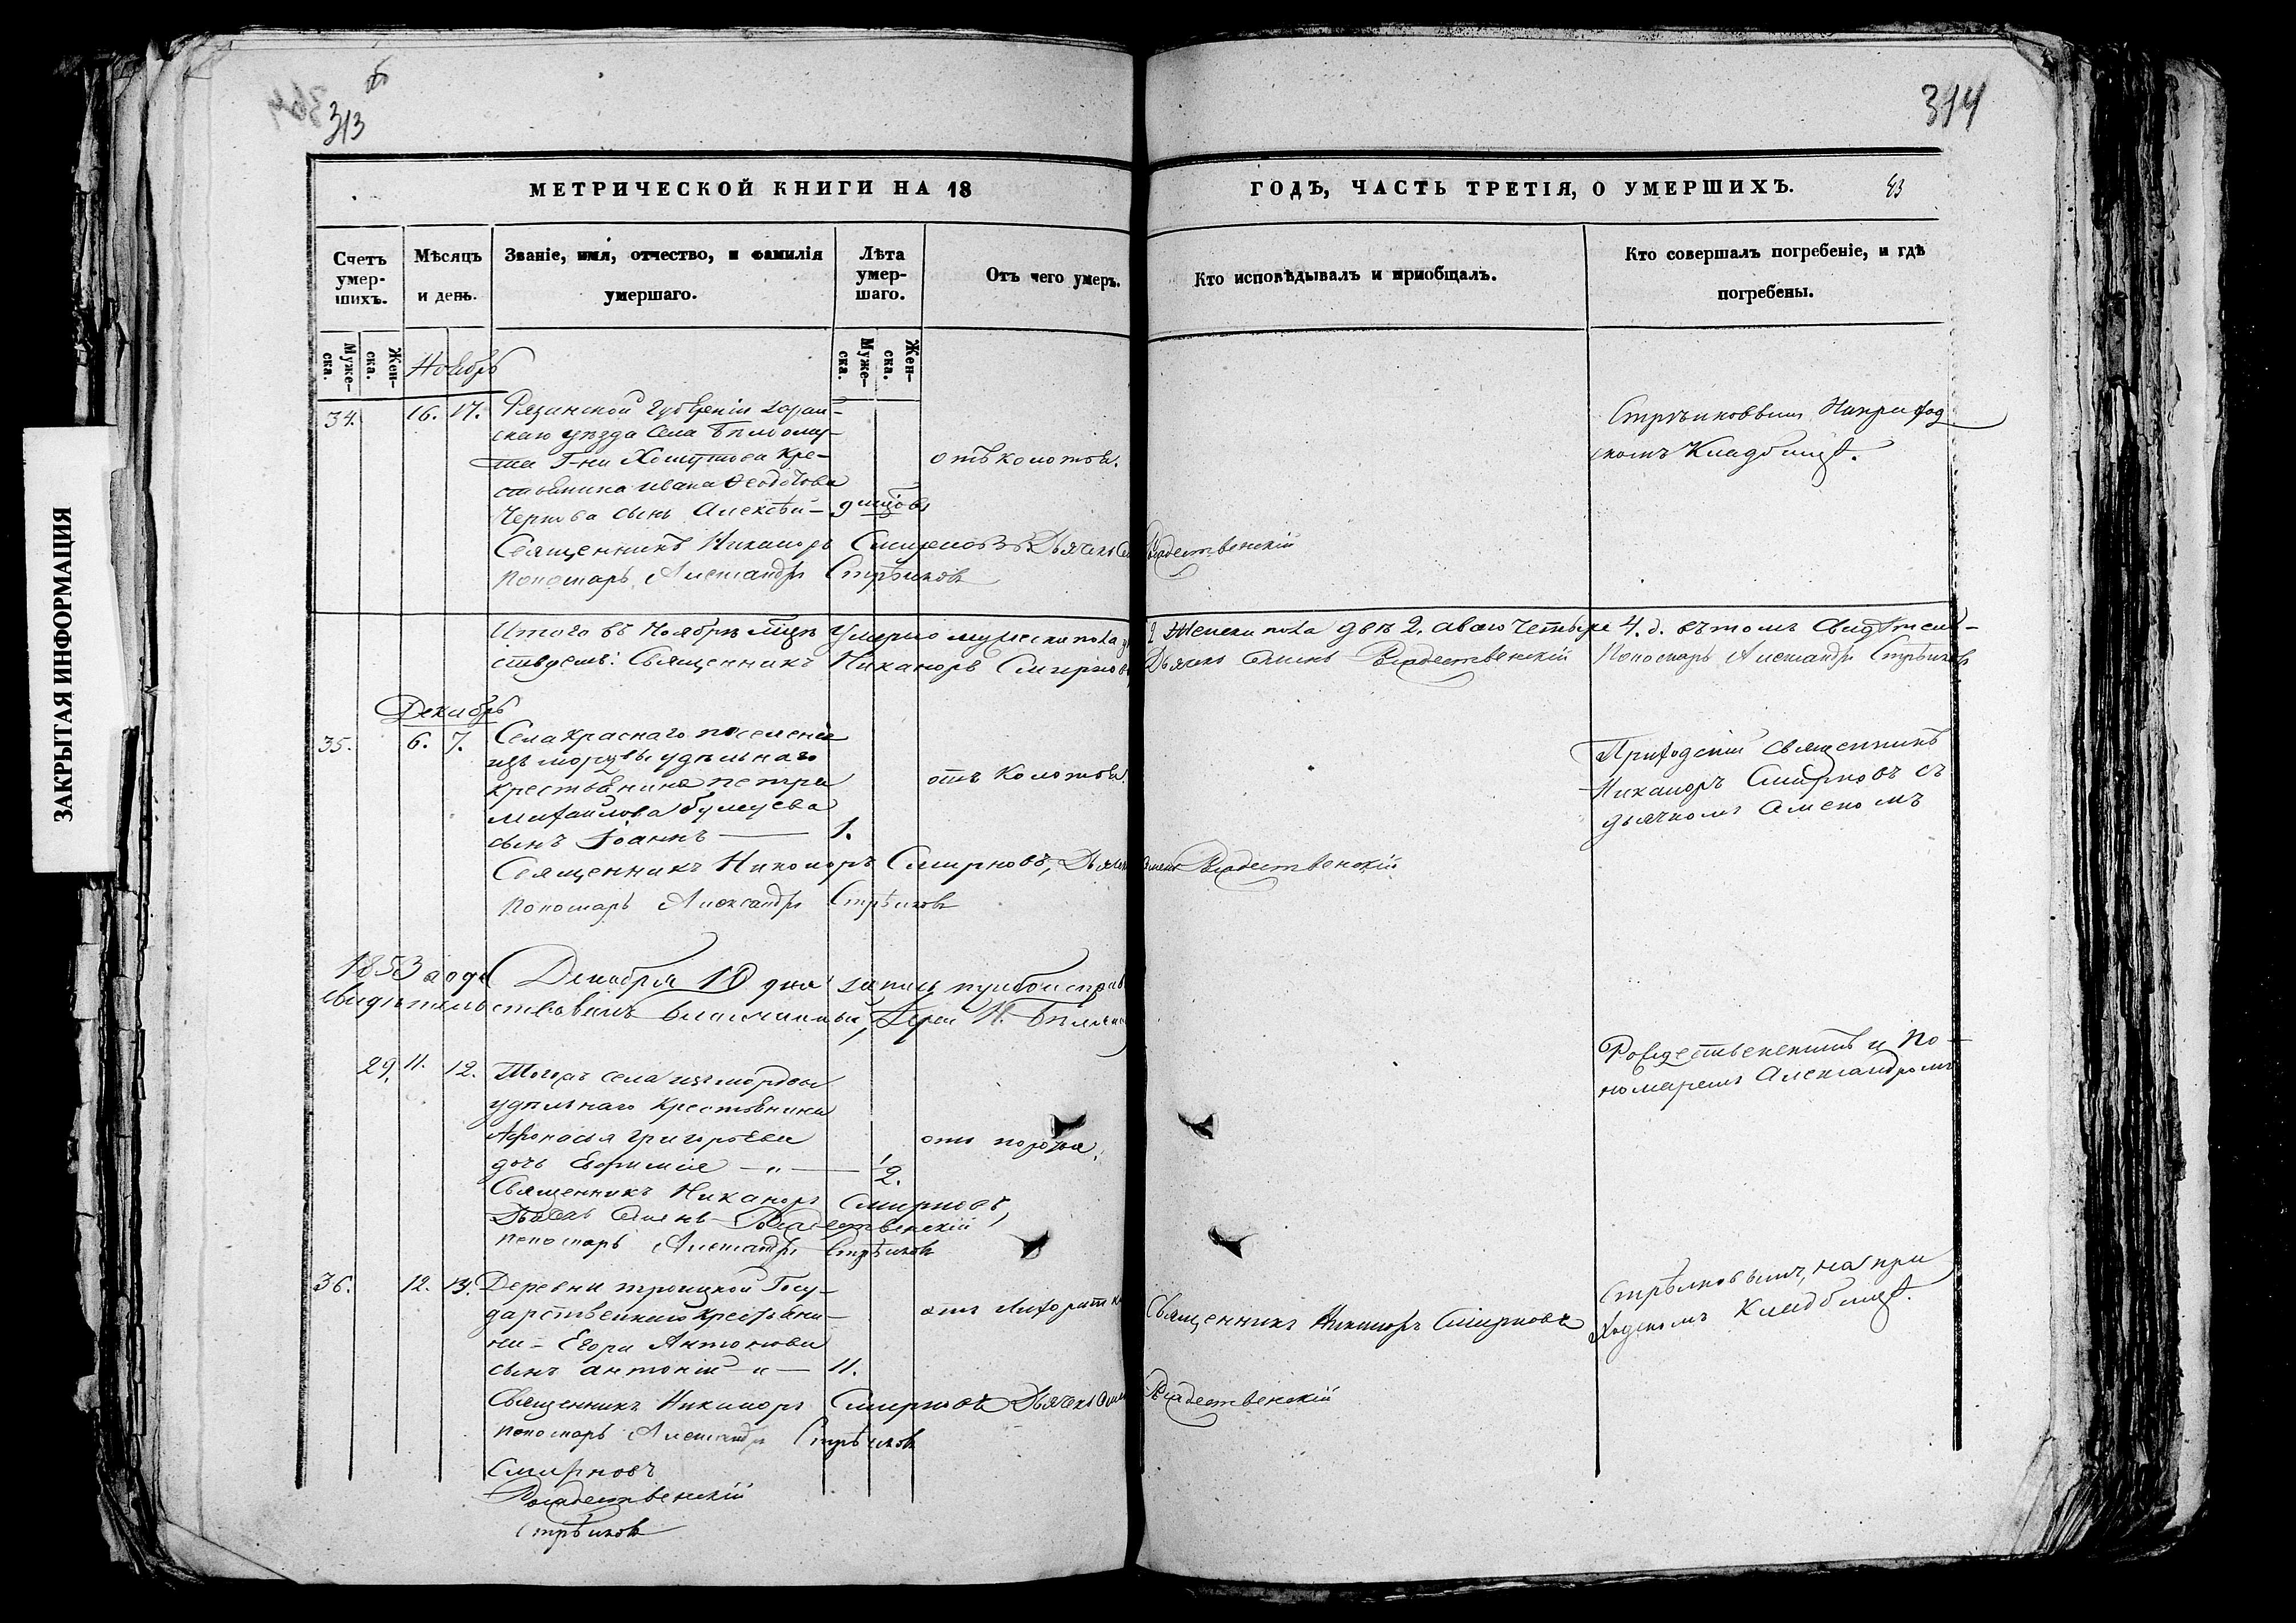 313
314
МЕТРИЧЕСКОЙ КНИГИ НА 18
ГОДЪ, ЧАСТЬ ТРЕТІЯ, О УМЕРШИХЪ.
43
Счетъ умер-шихъ.
Муже-ска.
Жен-ска.
Мѣсяцъ и день.
Званіе, имя, отчество, и фамилія умершаго.
Лѣта умер-шаго.
Муже-ска.
Жен-ска.
Отъ чего умеръ.
Кто исповѣдывалъ и пріобщалъ.
Кто совершалъ погребеніе, и гдѣ погребены.
Ноябрь
34. 16. 17. Рязанской Губерніи Зарай-
скаго уѣзда Села Бѣлому-
та Г-на Хомутова Кре-
стьянина Ивана
сынъ Алексѣй
отъ колотья.
Стрѣлковымъ На приход
скомъ Кладбищѣ.
Священникъ Никаноръ Смирновъ Дьячекъ Рождественскій
Пономарь Александръ Стрѣлковъ
Итого въ Ноябрѣ мцѣ Умерло мужеска пола женска пола двѣ 2. а всего четыре 4. въ томъ свидѣтель-
ствуемъ: Священникъ Никаноръ Смирновъ Дьячекъ Семенъ Рождественскій Пономарь Александръ Стрѣлковъ
Декабрь
35. 6. 7. Села Краснаго поселенія
изъ мордвы удѣльнаго
крестьянина Петра
Михайлова
сынъ Іоаннъ — 1.
отъ колотья.
Приходскій священникъ
Никаноръ Смирновъ съ
дьячкомъ Семеномъ
Священникъ Никаноръ Смирновъ, Дьячекъ Семенъ Рождественскій
Пономарь Александръ Стрѣлковъ
1853 года Декабря 10 дня запись
свидѣтельствовалъ Благочинный, Іерей
29. 11. 12. Тогожъ села изъ мордвы
удѣльнаго крестьянина
Афонасья Григорьева
дочь Евфимія — 1/2.
Рождественскимъ и По-
номаремъ Александромъ
Священникъ Никаноръ Смирновъ,
Дьячекъ Семенъ Рождественскій
Пономарь Александръ Стрѣлковъ
36. 12. 13. Деревни Троицкой Госу-
дарственнаго крестьяни-
на Егора Антонова
сынъ Антоній — 11.
отъ
Священникъ Никаноръ Смирновъ
Стрѣлковымъ, на при
ходскомъ Кладбищѣ.
Священникъ Никаноръ Смирновъ Дьячекъ Рождественскій
Пономарь Александръ Стрѣлковъ
Смирновъ
Рождественскій
Стрѣлковъ
ЗАКРЫТАЯ ИНФОРМАЦИЯ